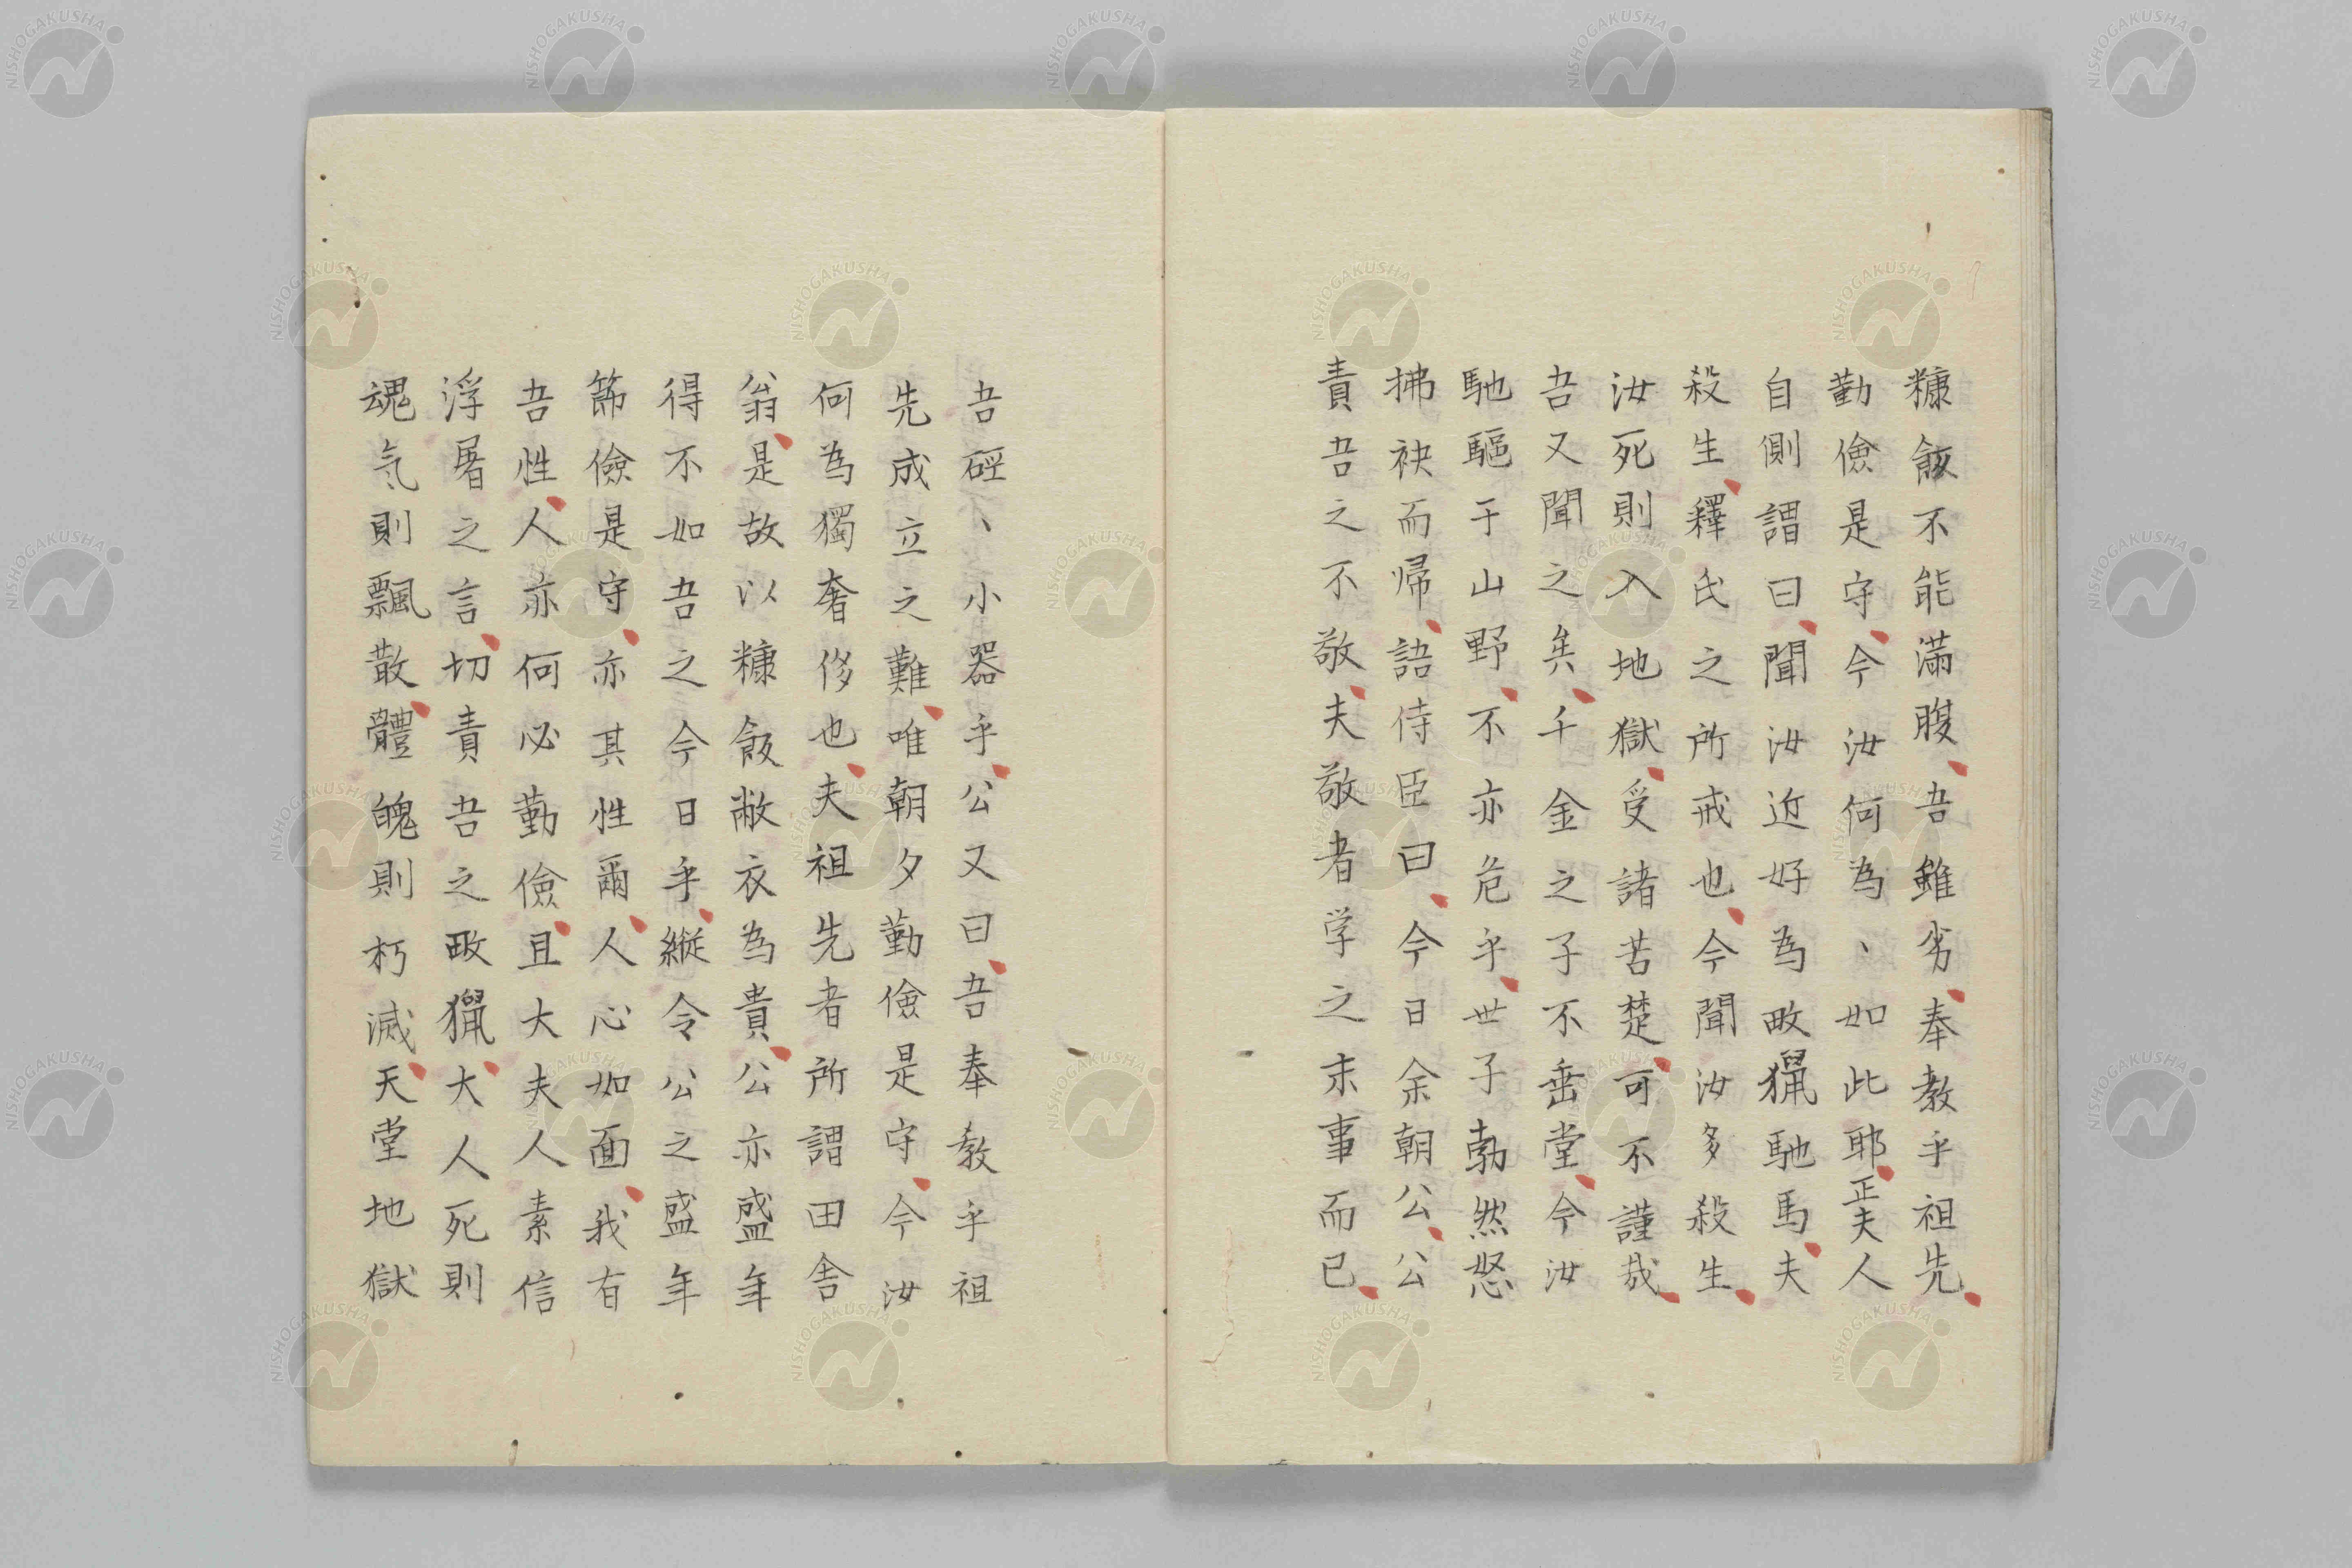 糠飯不能滿腹吾雖劣奉教乎祖先
勤儉是守今汝何為、如此耶正夫人
自側謂曰聞汝近好為畋獵馳馬夫
殺生釋氏之所戒也今聞汝多殺生
汝死則入地獄受諸苦楚可不謹哉
吾又聞之矣千金之子不垂堂今汝
馳驅于山野不亦危乎世子勃然怒
拂袂而帰語侍臣曰今日余朝公公
責吾之不敬夫敬者学之末事而已
吾硜、小器乎公又曰吾奉教乎祖
先成立之難唯朝夕勤儉是守今汝
何為獨奢侈也夫祖先者所謂田舎
翁是故以糠飯敝衣為貴公亦盛年
得不如吾之今日乎縦令公之盛年
節儉是守亦其性爾人心如面我有
吾性人亦何必勤儉且大夫人素信
浮屠之言切責吾之畋獵大人死則
魂気則飄散體魄則朽滅天堂地獄
NISHOGAKUSHA